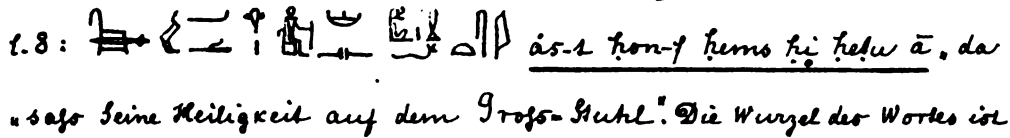 l. 8: ás-t ḥon-f ḥems ḥi ḥeṭu ā „da
„saſs Seine Heiligkeit auf dem Groſs-Stuhl“. Die Wurzel des Wortes ist